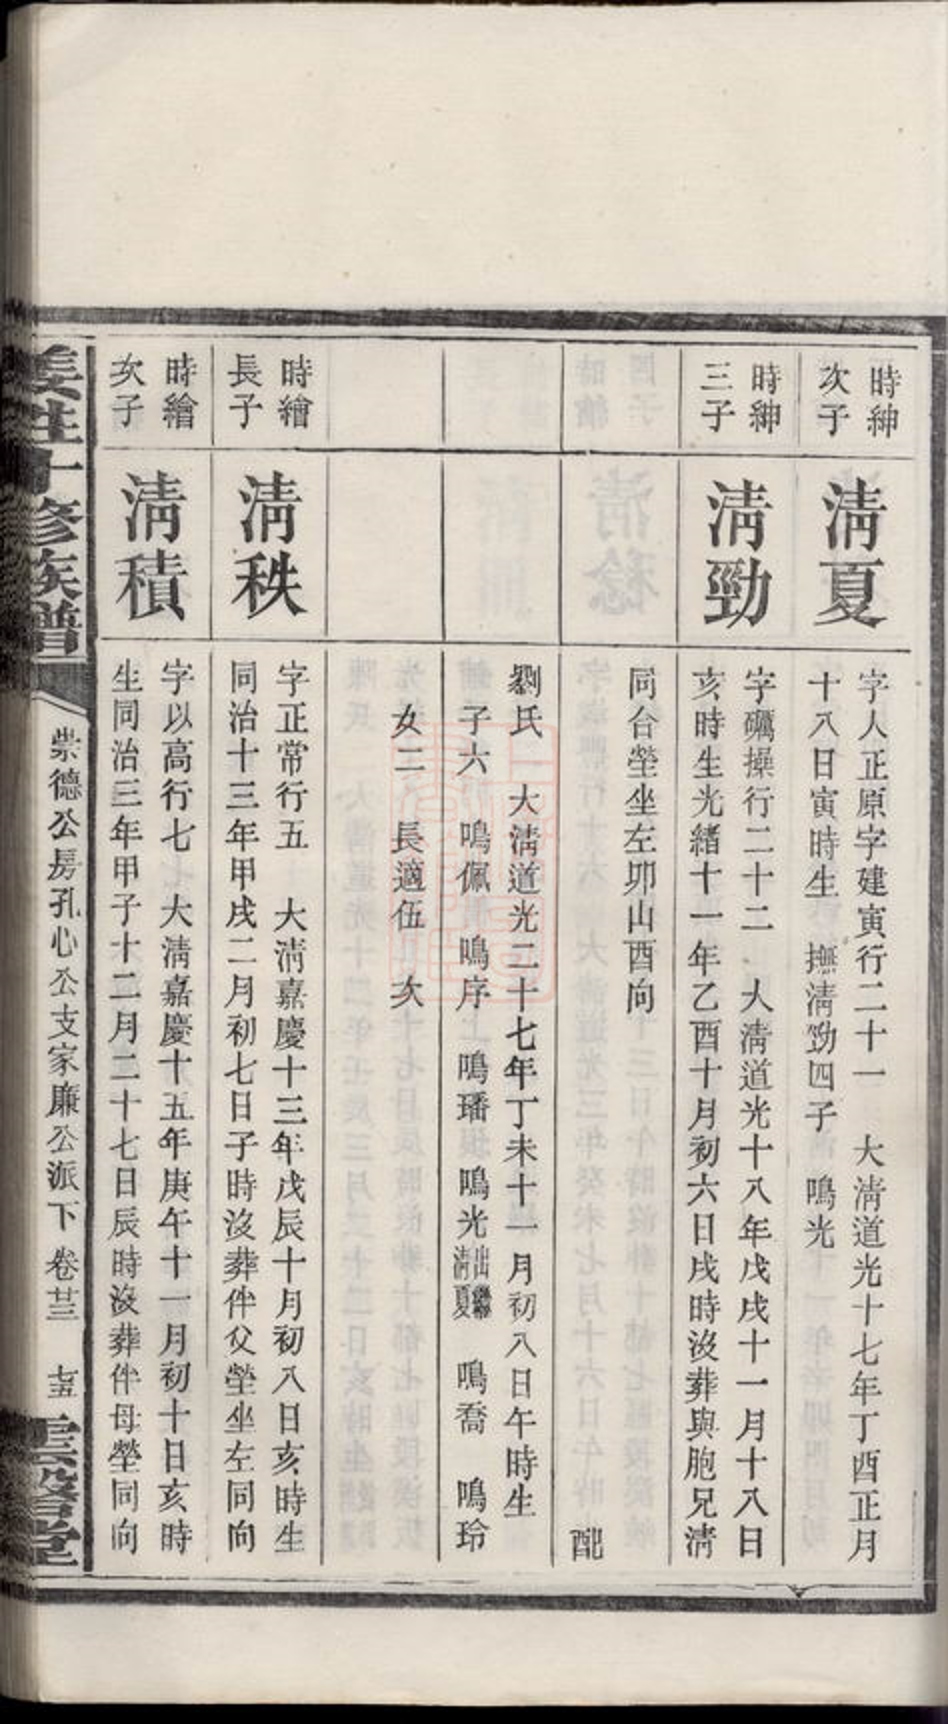 時紳
次子
清夏
字人正原字建寅行二十一 大清道光十七年丁酉正月
十八日寅時生 撫清勁四子 鳴光
時紳
三子
清勁
字礪操行二十二 大清道光十八年戊戌十一月十八日
亥時生光緒十一年乙酉十月初六日戌時沒葬與胞兄清
同台塋坐左卯山酉向
配
劉氏 大清道光二十七年丁未十一月初八日午時生
子六 鳴佩 鳴序 鳴璠 鳴光出繼清夏 鳴喬 鳴玲
女二 長適伍 次
時繪
長子
清秩
字正常行五 大清嘉慶十三年戊辰十月初八日亥時生
同治十三年甲戌二月初七日子時沒葬伴父塋坐左同向
時繪
次子
清積
字以高行七 大清嘉慶十五年庚午十一月初十日亥時
生同治三年甲子十二月二十七日辰時沒葬伴母塋同向
姜姓十修族譜
崇德公房孔心公支家廉公派下 卷廿三
七五
雲磐堂